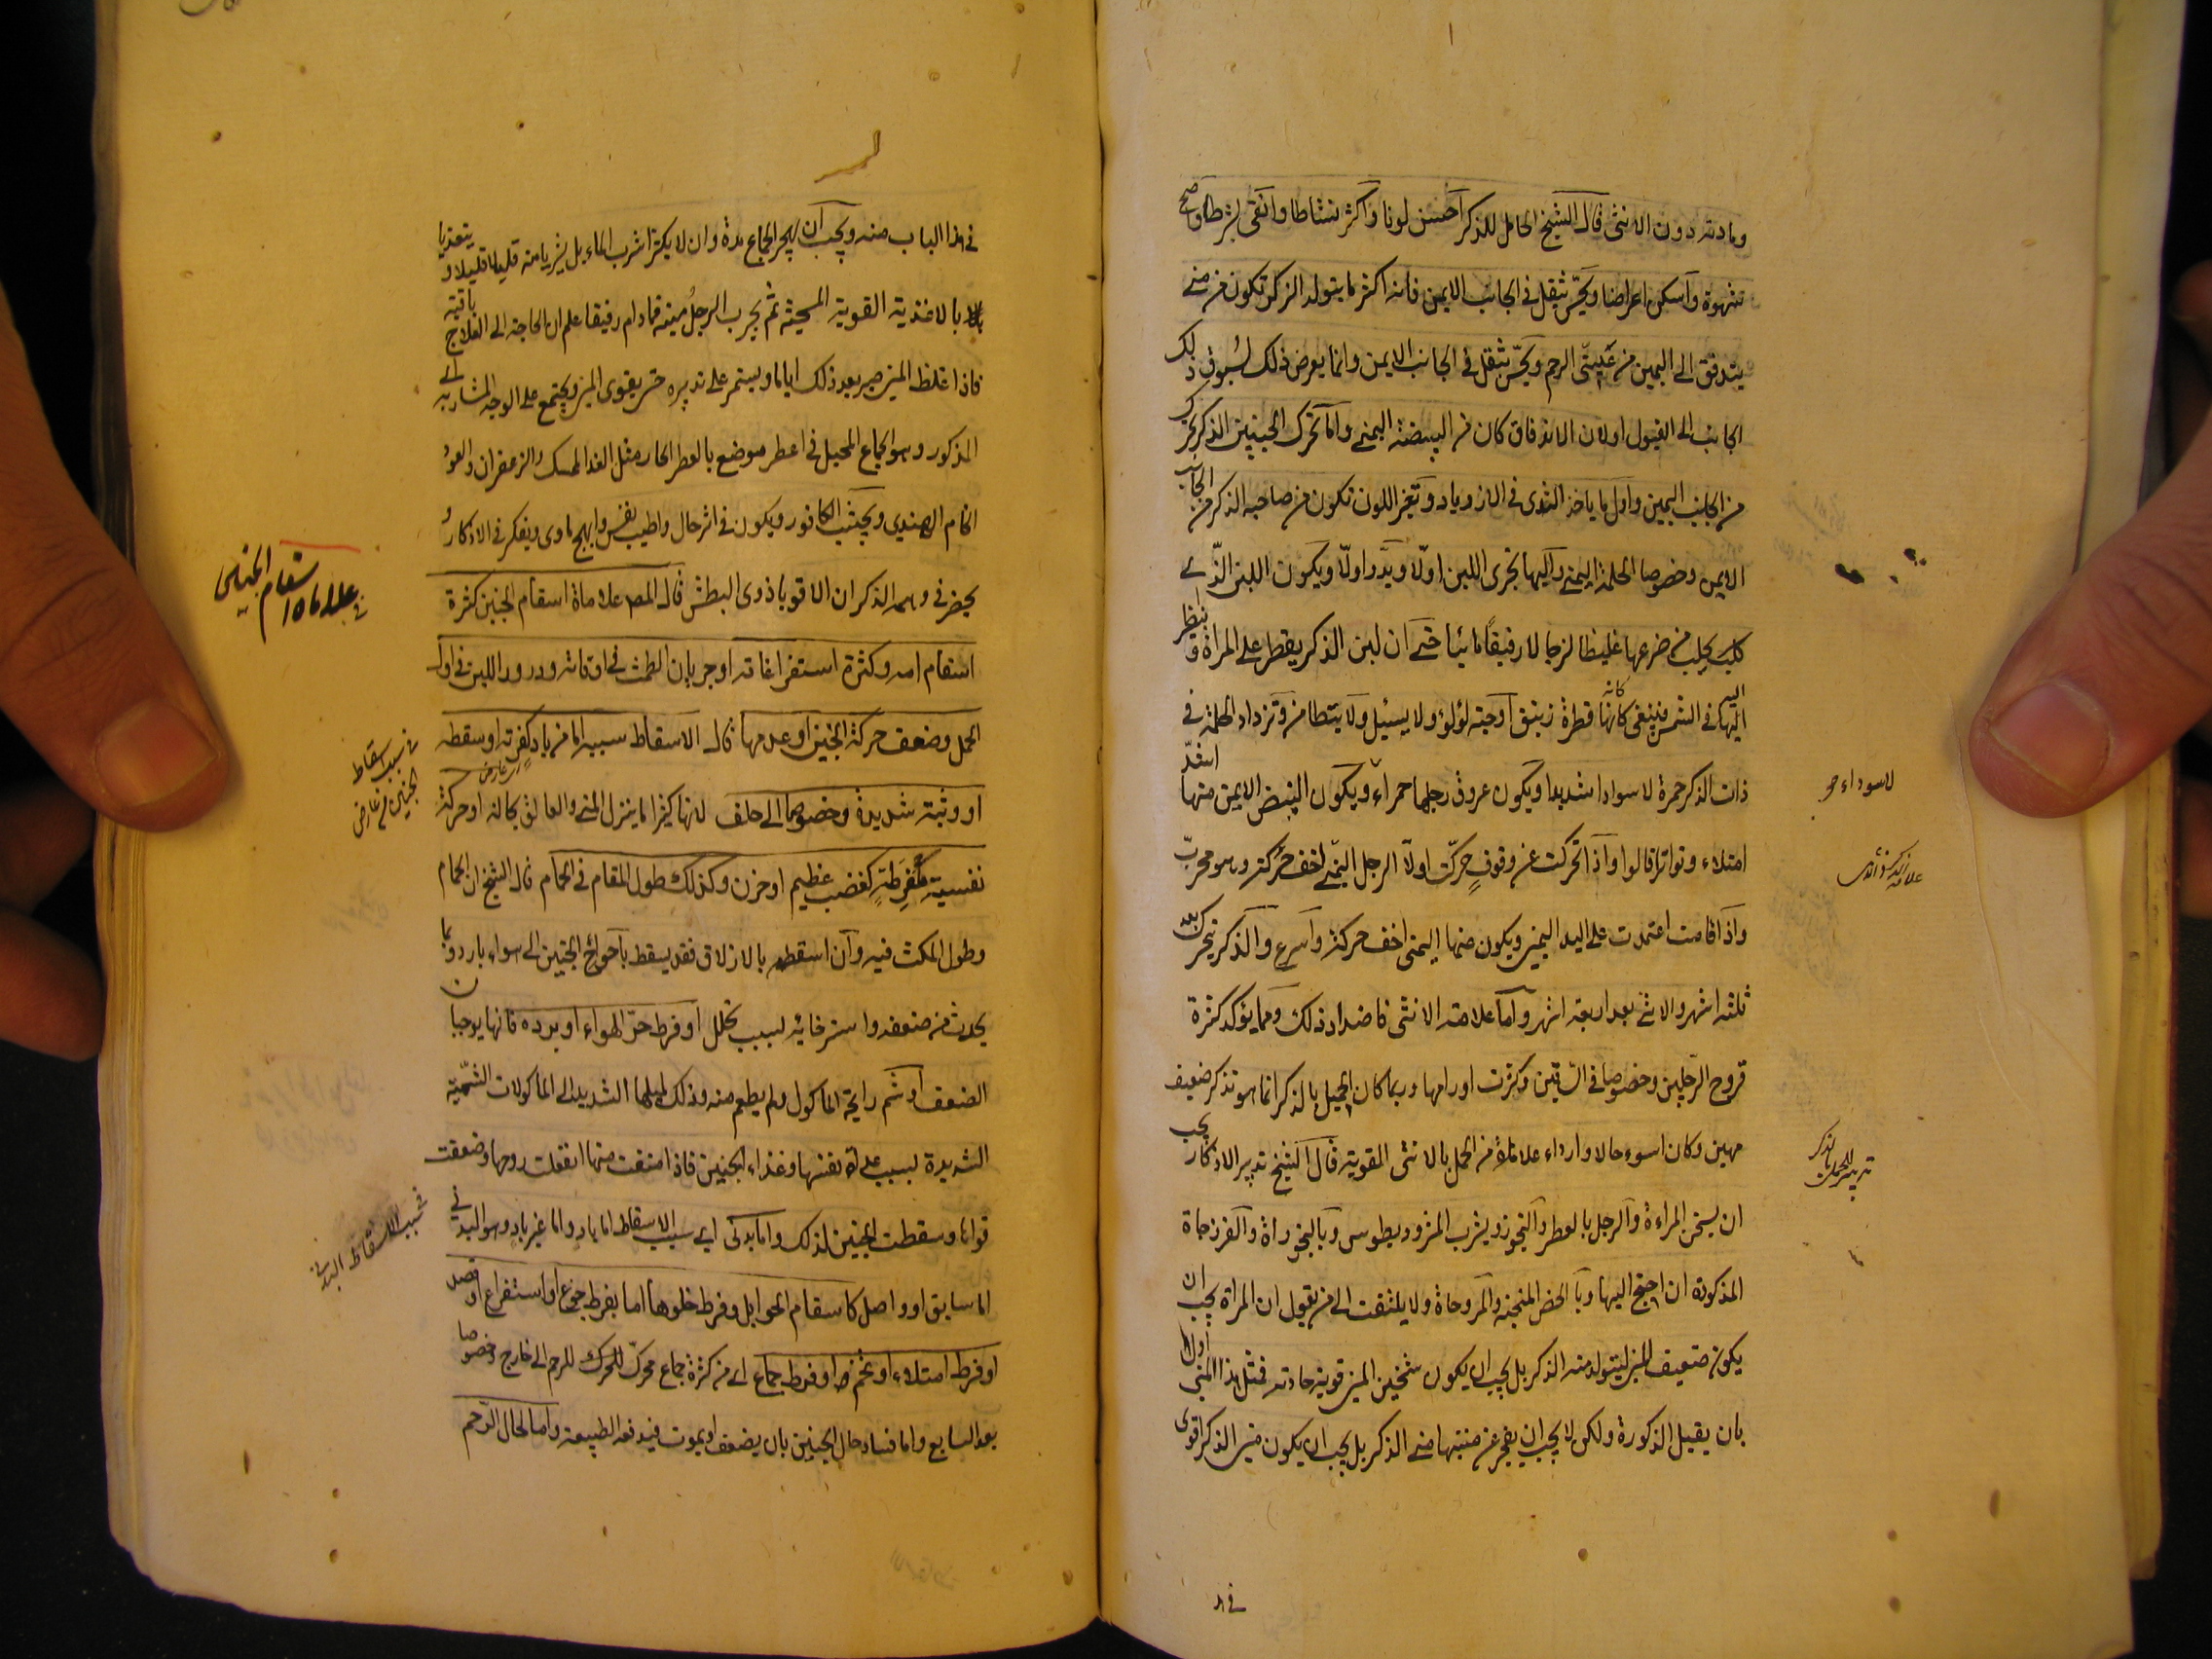 ومادته دون الانثى قال الشيخ الحامل للذكر احسن لونا واكثر نشاطا وانقى بشرة واصح
شهوة واسكن اعراضا وتحس بثقل في الجانب الايمن فانه اكثر ما يتولد الذكر تكون من مني
يتدفق الى اليمين من الرحم وتحس بثقل في الجانب الايمن وانما يعرض ذلك لسبوق ذلك
الجانب الى القبول اولان الاندفاق كان من البيضة اليمنى واما تحرك الجنين الذكر تحرك
من الجانب اليمين واول ما ياخذ الثدى في الازدياد وتغير اللون تكون من صاحبة الذكر من الجانب
الايمن وخصوصا الحلمة اليمنى واليها تجرى اللبن اولا ويدر اولا ويكون اللبن الذى
يحلب من ضرعها غليظا لزجا لا رقيقا مائيا حتى ان لبن الذكر يقطر على المراة وينظر
اليه في الشمس فيبقى كانه قطرة زيبق او حبة لؤلؤ ولا يسيل ولا يتطامن وتزداد الحلمة في
ذات الذكر حمرة لا سوادا شديدا ويكون عروق رجلها حمراء ويكون النبض الايمن منها اشد
امتلاء وتواترا قالوا واذا تحركت عن وقوف حركت اولا الرجل اليمنى اخف حركة وهو مجرب
واذا قامت اعتمدت على اليد اليمنى ويكون عينها اليمنى اخف حركة واسرع والذكر يتحرك بعد
ثلثة اشهر والانثى بعد اربعة اشهر واما علامة الانثى فاضداد ذلك ومما يؤكد كثرة
قروح الرجلين وخصوصا في الساقين وكثرت اورامها وربما كان الحبل بالذكر انما هو بذكر ضعيف
مهين وكان اسوء حالا وارداء علامة من الحمل بالانثى القوية قال الشيخ تدبير الاذكار يجب
ان يسخن المراءة والرجل بالعطر والبخور وبشرب المثروديطوس وبالبخورات والفرزجات
المذكورة ان احتيج اليها وبالحقن المسخنة والمروخات ولا يلتفت الى من يقول ان المراة يجب ان
يكون ضعيف المنى ليتولد منه الذكر بل يجب ان يكون ثخين المنى قوية حادته فمثل هذا المنى اولى
بان يقبل الذكورة ولكن لا يجب ان يعجز عن منيها منى الذكر بل يجب ان يكون منى الذكر اقوى
لا سوداء
علامة
تدبير للحمل بالذكر
في هذا
في هذا الباب منه ويجب ان يهجر الجماع مدة وان لا يكثرا شرب الماء بل يشربا منه قليلا قليلا ويتغذيا
بالاغذية القوية ثم يجرب الرجل منيه فما دام رقيقا علم ان الحاجة الى العلاج باقية
فاذا غلظ المنى صبر بعد ذلك اياما ويستمر على تدبيره حتى يقوى المنى ويجتمع على الوجه المشار اليه
المذكور وهو الجماع المحبل في اعطر موضع بالعطر الحار مثل الند والمسك والزعفران والعود
الخام الهندي ويجتنب الكافور ويكون في اثر حال واطيب نفس وابهج ماوى ويفكر في الاذكار و
يحضر في وهمه الذكران الاقوياء ذوى البطش قال المص علامات اسقام الجنين كثرة
اسقام امه وكثرة استفراغاته او جريان الطمث في اوقاته ودرور اللبن في اول
الحمل وضعف حركة الجنين او عدمها قال الاسقاط سببه اما من باد كضربة او سقطه
او وثبة شديدة وخصوصا الى خلف لانها كثيرا ما ينزل المنى والعالق بحاله او حركة
نفسية مفرطة كغضب عظيم او حزن وكذلك طول المقام في الحمام قال الشيخ ان الحمام
وطول المكث فيه وان اسقطه بالازلاق فقد يسقط باحواج الجنين الى هواء بارد وبما
يحدث من ضعفه واسترخائه بسبب تحلل او فرط حر الهواء او برده فانها يوجبان
الضعف او شم رايحة الماكول ولم يطعم منه وذلك لميلها الشديد الى الماكولات الشمية
الشديدة بسبب نفسها وغذاء الجنين فاذا امتنعت منها انفعلت روحها وضعفت
قواها وسقطت الجنين لذلك واما بدنى اي سبب الاسقاط اما باد واما غير باد وهو البدنى
اما سابق او واصل كاسقام الحوامل وفرط خلوها اما بفرط جوع او استفراغ او فصد
او فرط امتلاء او تخم او فرط جماع اى من كثرة جماع محرك للرحم الى خارج وخصوصا
بعد السابع واما فساد حال الجنين بان يضعف او يموت فيدفعه الطبيعة واما لحال الرحم
في علامات اسقام الجنين
في سبب اسقاط
الجنين من عارض
في سبب الاسقاط البدنى